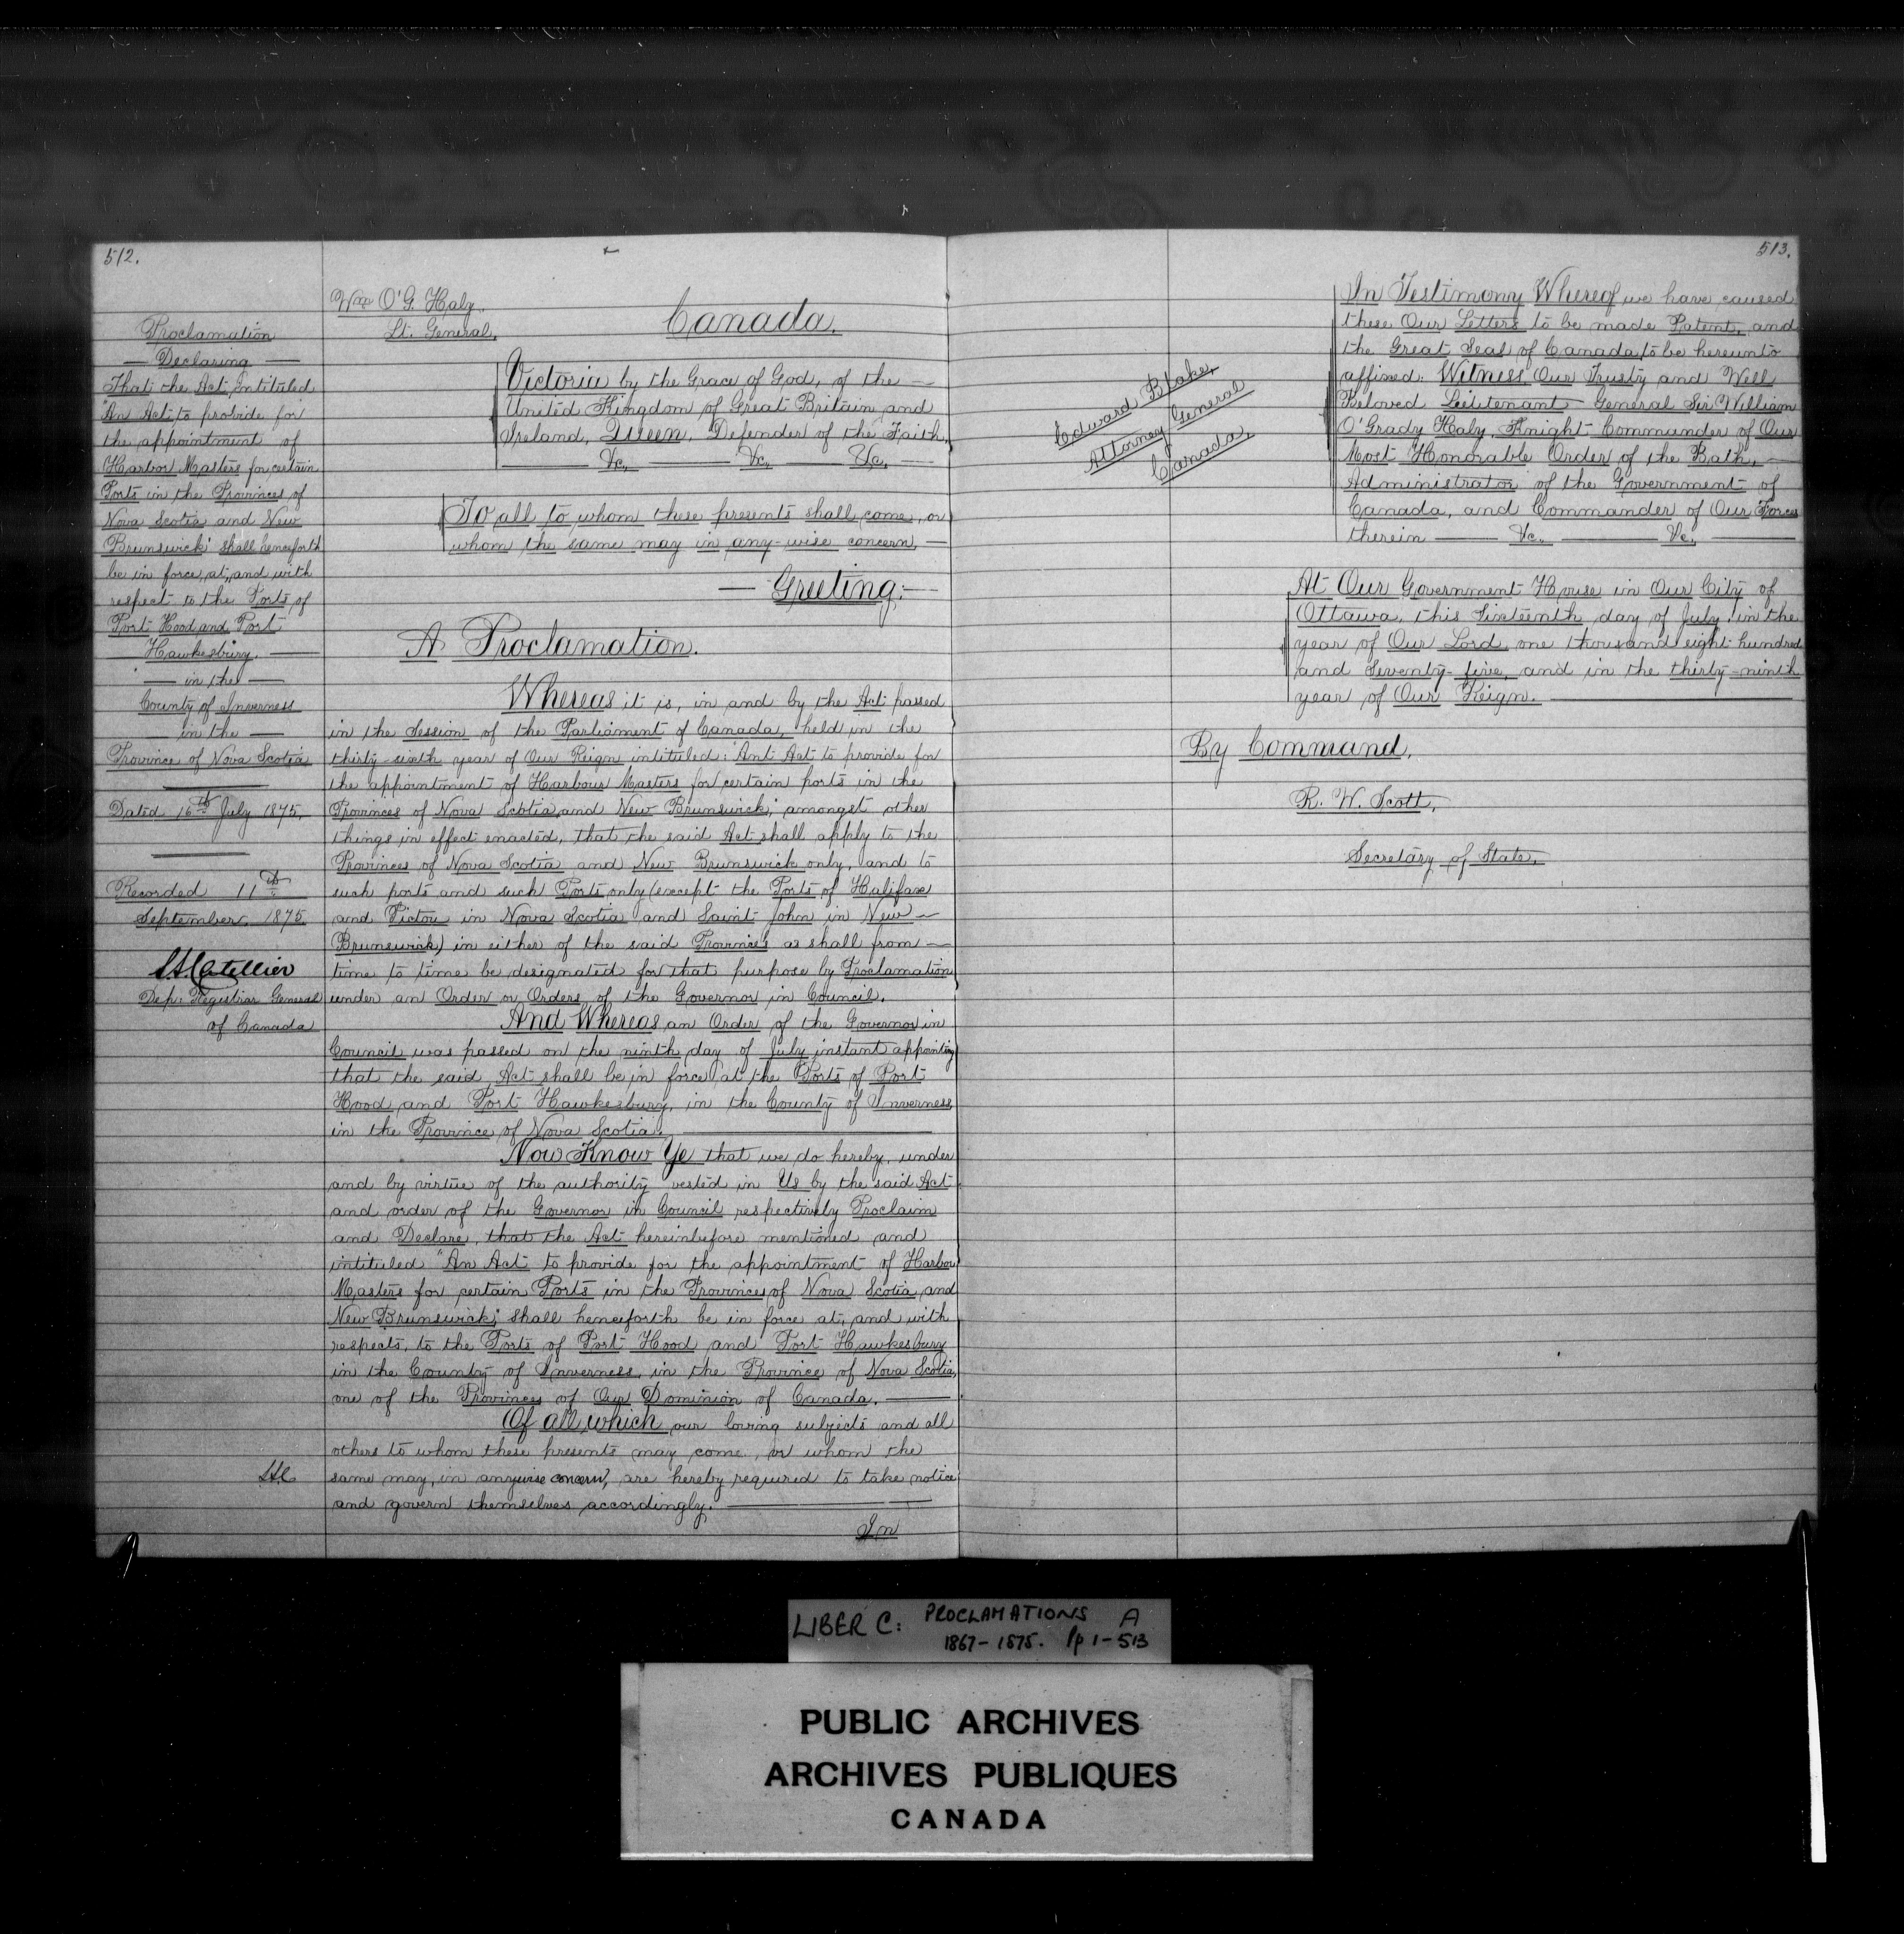 512.
Proclamation
— Declaring —
That the Act, intituled
"An Act, to provide for
the appointment of
Harbor Masters for certain
Ports in the Provinces of
Nova Scotia and New
Brunswick" shall henceforth
be in force, at, and with
respect to the Ports of
Port Hood and Port
Hawkesbury. —
— in the —
County of Inverness
— in the —
Province of Nova Scotia
Dated 16th July 1875.
Recorded 11th
September, 1875.
Dep: Registrar General
of Canada
Wm O'G. Haly.
Lt. General.
Canada.
Victoria by the Grace of God, of the —
United Kingdom of Great Britain and
Ireland, Queen, Defender of the Faith,
— &c, — &c, — &c, —
To all to whom these presents shall come, or
whom the same may in any-wise concern, —
— Greeting:—
A Proclamation.
Whereas it is, in and by the Act passed
in the Session of the Parliament of Canada, held in the
thirty-sixth year of Our Reign intituled: "Ant Act to provide for
the appointment of Harbour Masters for certain ports in the
Provinces of Nova Scotia and New Brunswick", amongst other
things in effect enacted, that the said Act shall apply to the
Provinces of Nova Scotia and New Brunswick only, and to
such ports and such Ports only (except the Ports of Halifax
and Pictou in Nova Scotia and Saint John in New —
Brunswick) in either of the said Provinces as shall from —
time to time be designated for that purpose by Proclamation
under an Order or Orders of the Governor in Council.
And Whereas an Order of the Governor in
Council was passed on the ninth day of July instant appointing
that the said Act shall be in force at the Ports of Port
Hood and Port Hawkesbury, in the County of Inverness
in the Province of Nova Scotia. —
Now Know Ye that we do hereby, under
and by virtue of the authority vested in Us by the said Act
and order of the Governor in Council respectively Proclaim
and Declare, that the Act hereinbefore mentioned and
intituled "An Act to provide for the appointment of Harbor
Masters for certain Ports in the Provinces of Nova Scotia and
New Brunswick", shall henceforth be in force at, and with
respects, to the Ports of Port Hood and Port Hawkesbury
in the County of Inverness, in the Province of Nova Scotia,
one of the Provinces of Our Dominion of Canada. —
Of all which our loving subjects and all
others to whom these presents may come, or whom the
same may, in anywise concern, are hereby required to take notice
and govern themselves accordingly. —
In
513.
Edward Blake,
Attorney General
Canada.
In Testimony Whereof we have caused
these Our Letters to be made Patent, and
the Great Seal of Canada, to be hereunto
affixed: Witness, Our Trusty and Well
Beloved Lieutenant General Sir William
O'Grady Haly, Knight Commander of Our
Most Honorable Order of the Bath, —
Administrator of the Government of
Canada, and Commander of Our Forces
therein — &c. — &c. —
At Our Government House in Our City of
Ottawa, this Sixteenth day of July in the
year of Our Lord, one thousand eight hundred
and Seventy-five, and in the thirty-ninth
year of Our Reign. —
By Command,
R. W. Scott,
Secretary of State,
LIBER C: PROCLAMATIONS A
1867-1875. Pp 1-513
PUBLIC ARCHIVES
ARCHIVES PUBLIQUES
CANADA